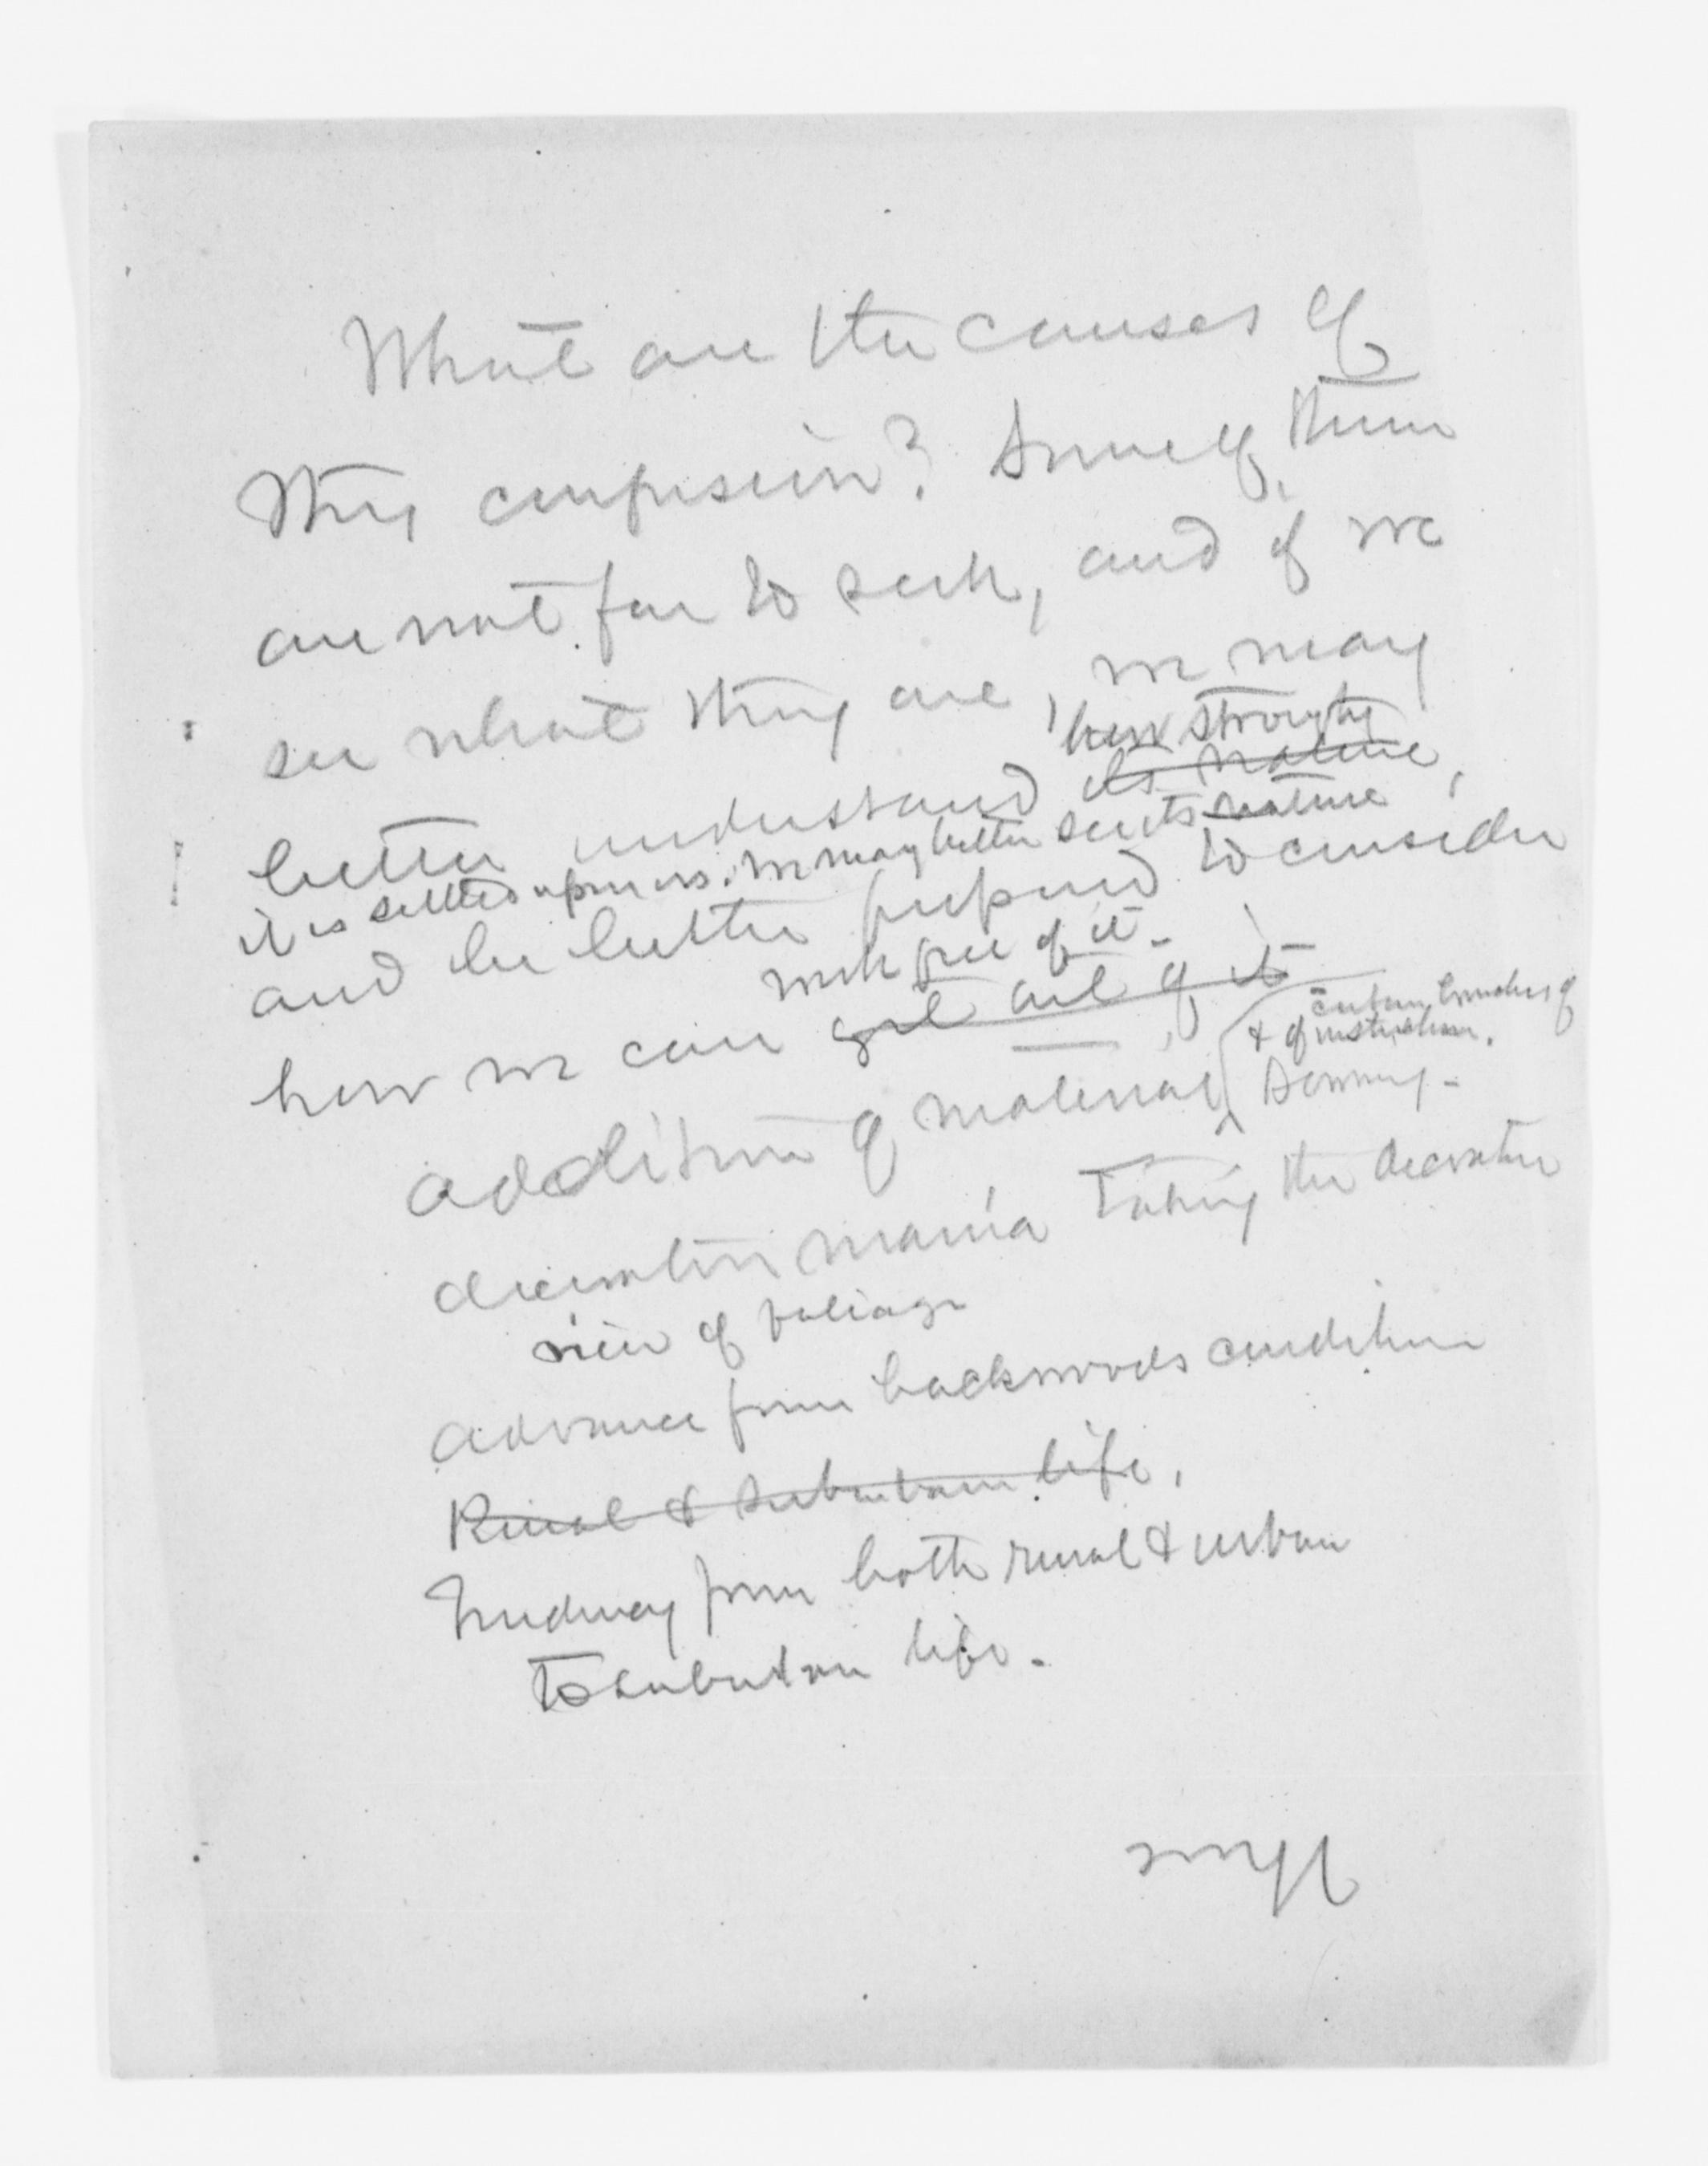 What are the causes of
this confusion? Some of them
are not far to seek, and if we
see what they are, we may
how strongly
better understand its nature,
it is settled upon us. We may better see its nature
and be better prepared to consider
work free of it.
how we can get out of it
certain branches of
& of instruction.
addition of material
Downing.
decorative mania Taking the decorative
view of foliage
Advance from backwoods condition
Rural & suburban life.
Midway from both rural & urban
to suburban life.